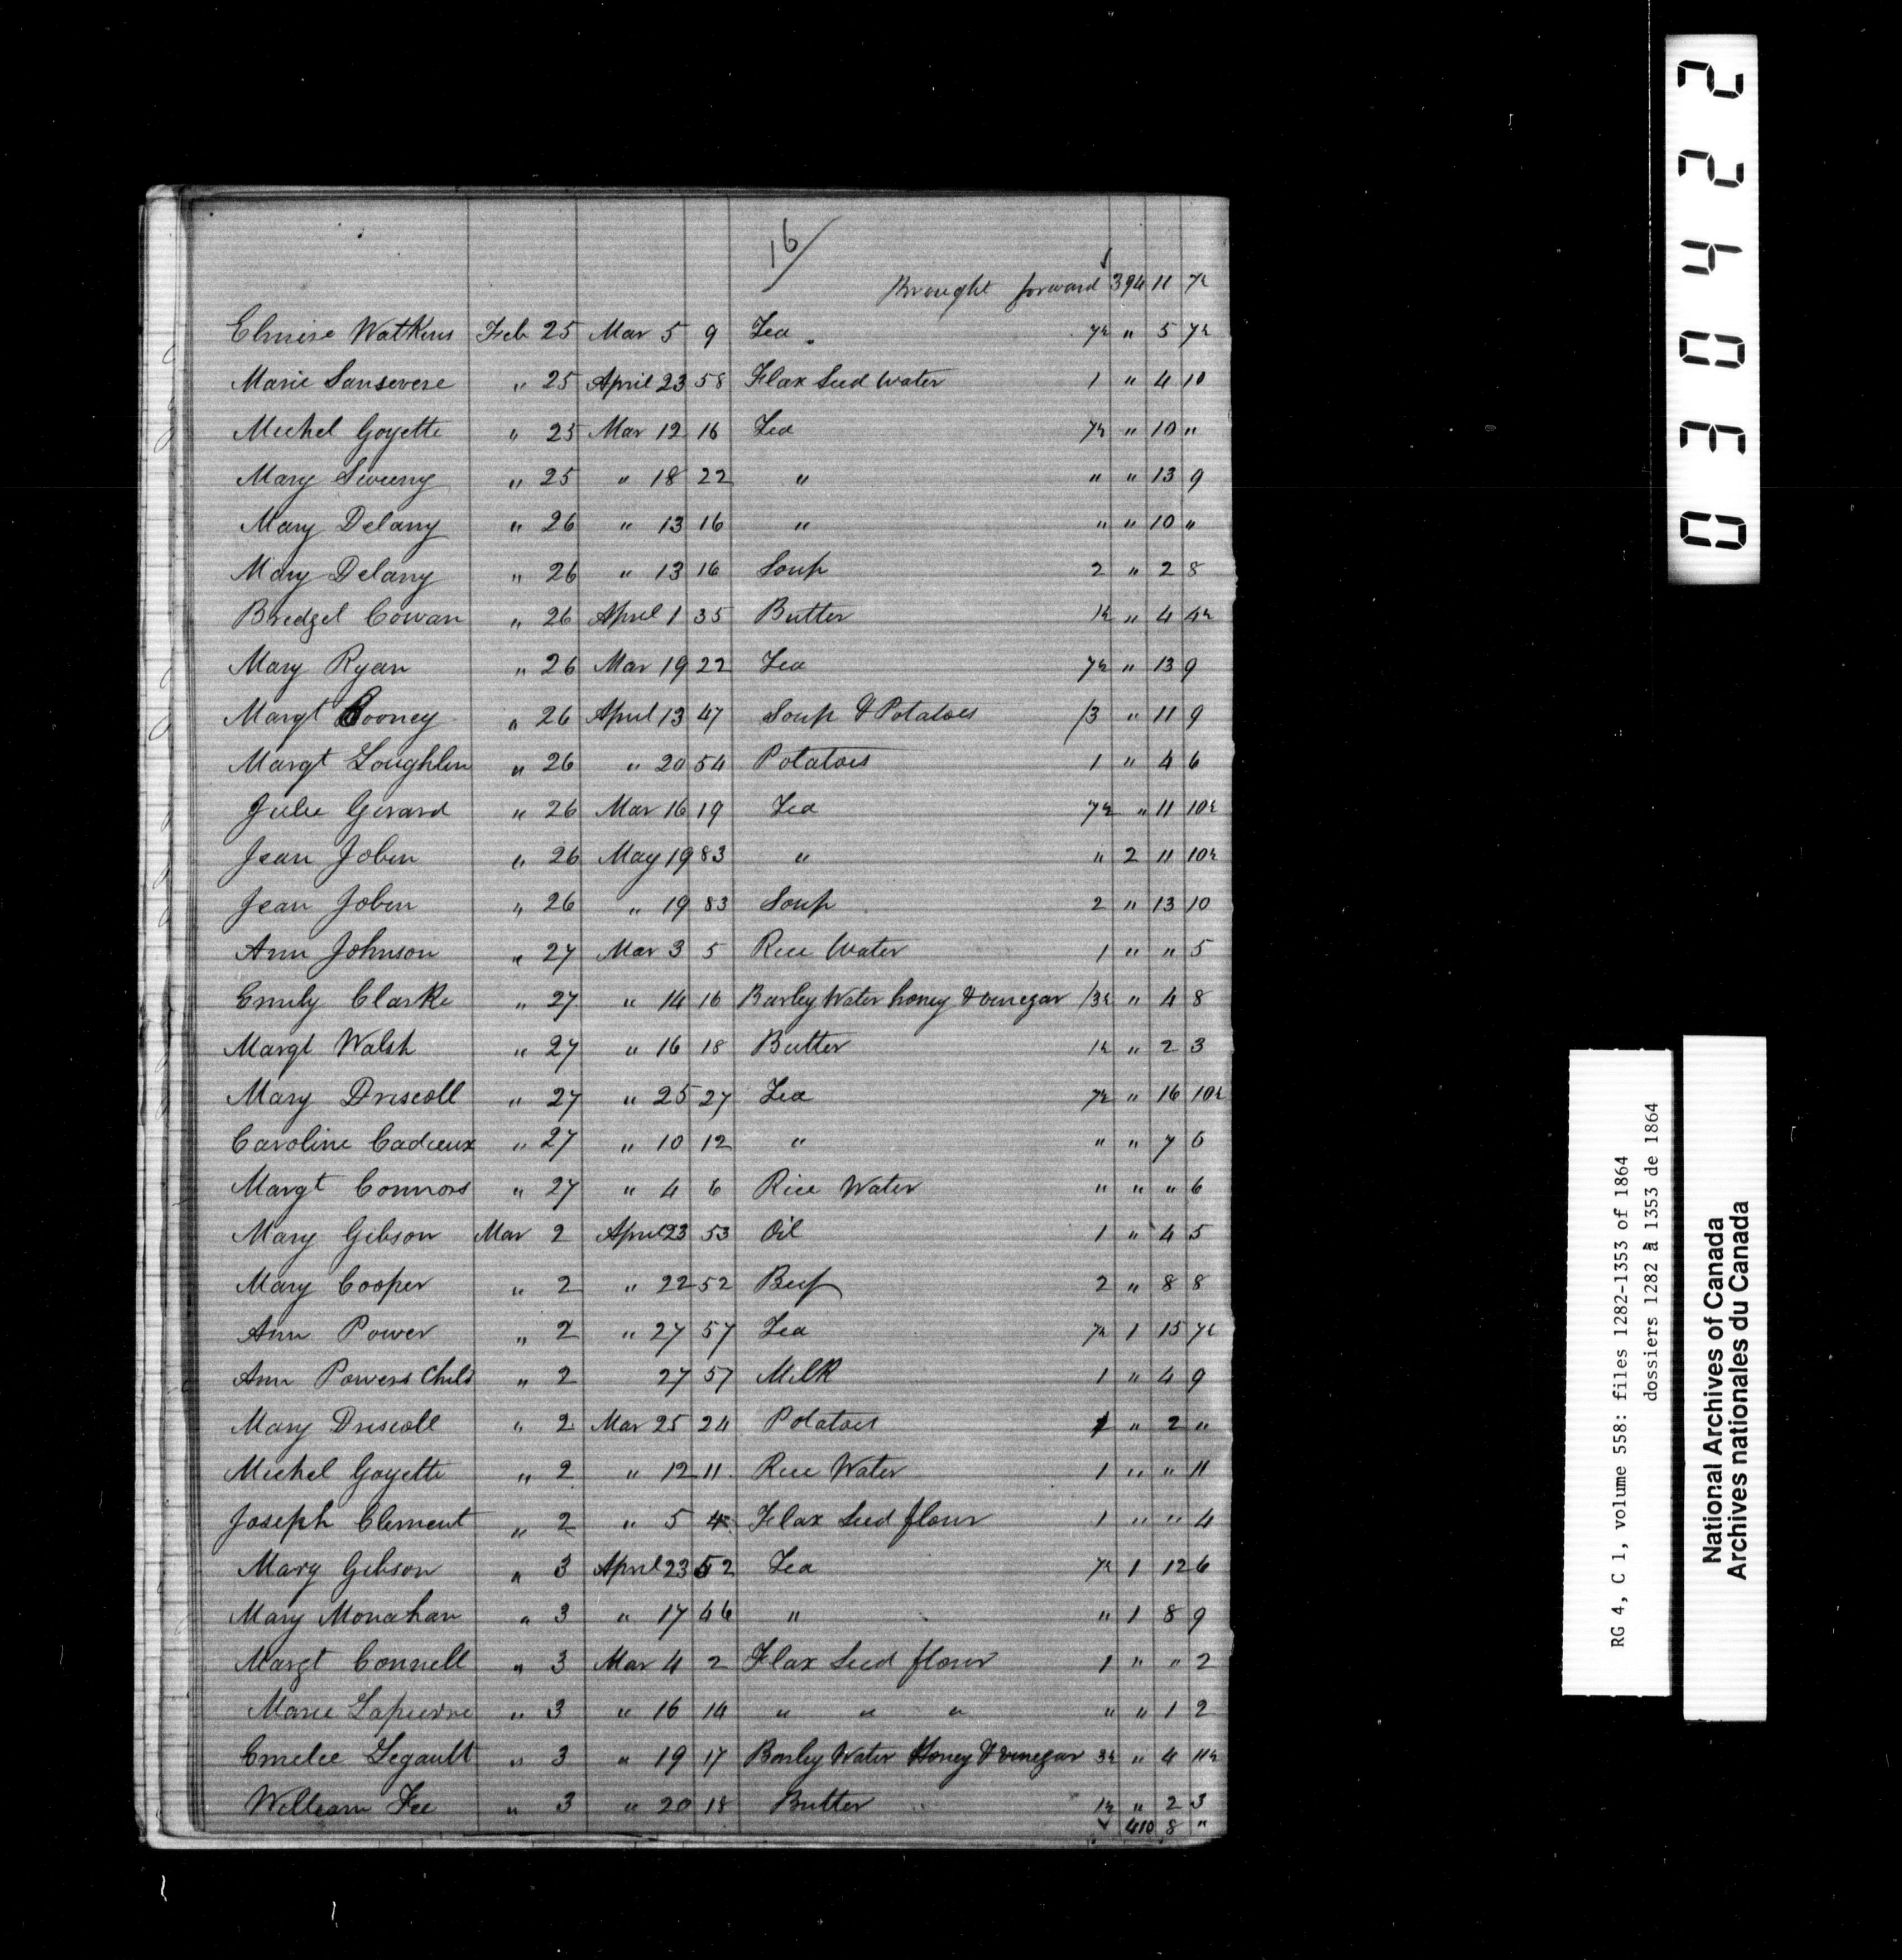 16/
Brought forward 394 11 7½
Elmire Watkins Feb 25 Mar 5 9 Tea 7½ " 5 7½
Marie Sansevere " 25 April 23 58 Flax Seed Water 1 " 4 10
Michel Goyette " 25 Mar 12 16 Tea 7½ " 10 "
Mary Sweeny " 25 " 18 22 " " " 13 9
Mary Delany " 26 " 13 16 " " " 10 "
Mary Delany " 26 " 13 16 Soup 2 " 2 8
Bridget Cowan " 26 April 1 35 Butter 1½ " 4 4½
Mary Ryan " 26 Mar 19 22 Tea 7½ " 13 9
Margt Rooney " 26 April 13 47 Soup & Potatoes /3 " 11 9
Margt Loughlin " 26 " 20 54 Potatoes 1 " 4 6
Julie Girard " 26 Mar 16 19 Tea 7½ " 11 10½
Jean Jobin " 26 May 19 83 " " 2 11 10½
Jean Jobin " 26 " 19 83 Soup 2 " 13 10
Ann Johnson " 27 Mar 3 5 Rice Water 1 " " 5
Emily Clarke " 27 " 14 16 Barley Water honey & vinegar /3½ " 4 8
Margt Walsh " 27 " 16 18 Butter 1½ " 2 3
Mary Driscoll " 27 " 25 27 Tea 7½ " 16 10½
Caroline Cadieux " 27 " 10 12 " " " 7 6
Margt Connors " 27 " 4 6 Rice Water " " " 6
Mary Gibson Mar 2 April 23 53 Oil 1 " 4 5
Mary Cooper " 2 " 22 52 Beef 2 " 8 8
Ann Power " 2 " 27 57 Tea 7½ 1 15 7½
Ann Powers Child " 2 27 57 Milk 1 " 4 9
Mary Driscoll " 2 Mar 25 24 Potatoes 1 " 2 "
Michel Goyette " 2 " 12 11 Rice Water 1 " " 11
Joseph Clement " 2 " 5 4 Flax Seed flour 1 " " 4
Mary Gibson " 3 April 23 52 Tea 7½ 1 12 6
Mary Monahan " 3 " 17 46 " " 1 8 9
Margt Connell " 3 Mar 4 2 Flax Seed flour 1 " " 2
Marie Lapierre " 3 " 16 14 " " " " " 1 2
Emelie Legault " 3 " 19 17 Barley Water Honey & vinegar 3½ " 4 11½
William Fee " 3 " 20 18 Butter 1½ " 2 3
410 8 "
034042
RG 4, C 1, volume 558: files 1282-1353 of 1864
dossiers 1282 à 1353 de 1864
National Archives of Canada
Archives nationales du Canada